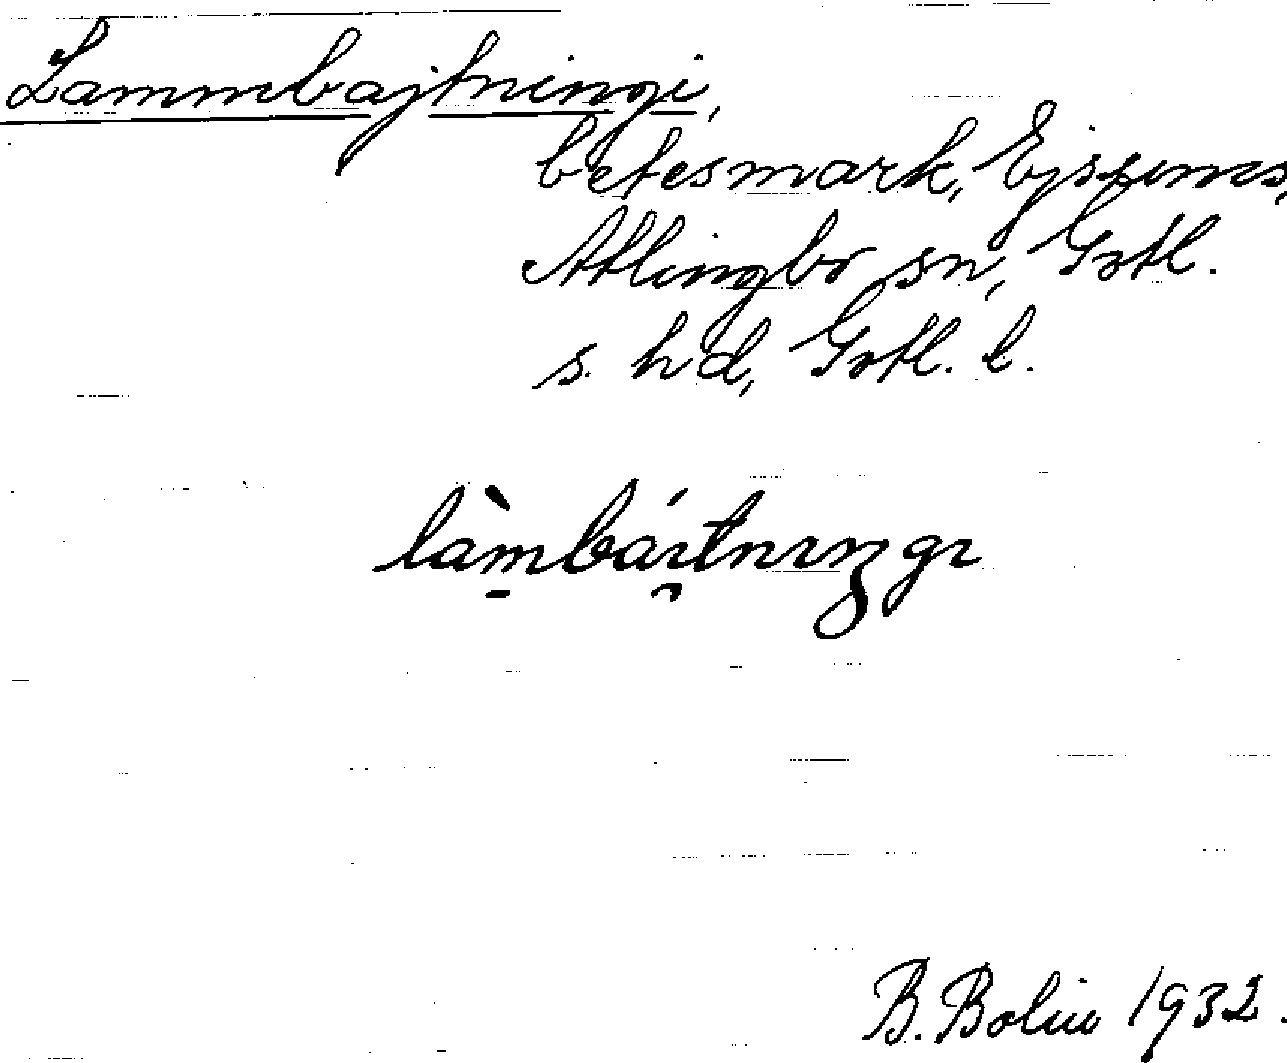 Lammbajtningi,
betesmark, Ejsxmes,
Atlingbo sn, Gotl.
s. hd, Gotl. l.
B. Bolin 1932.